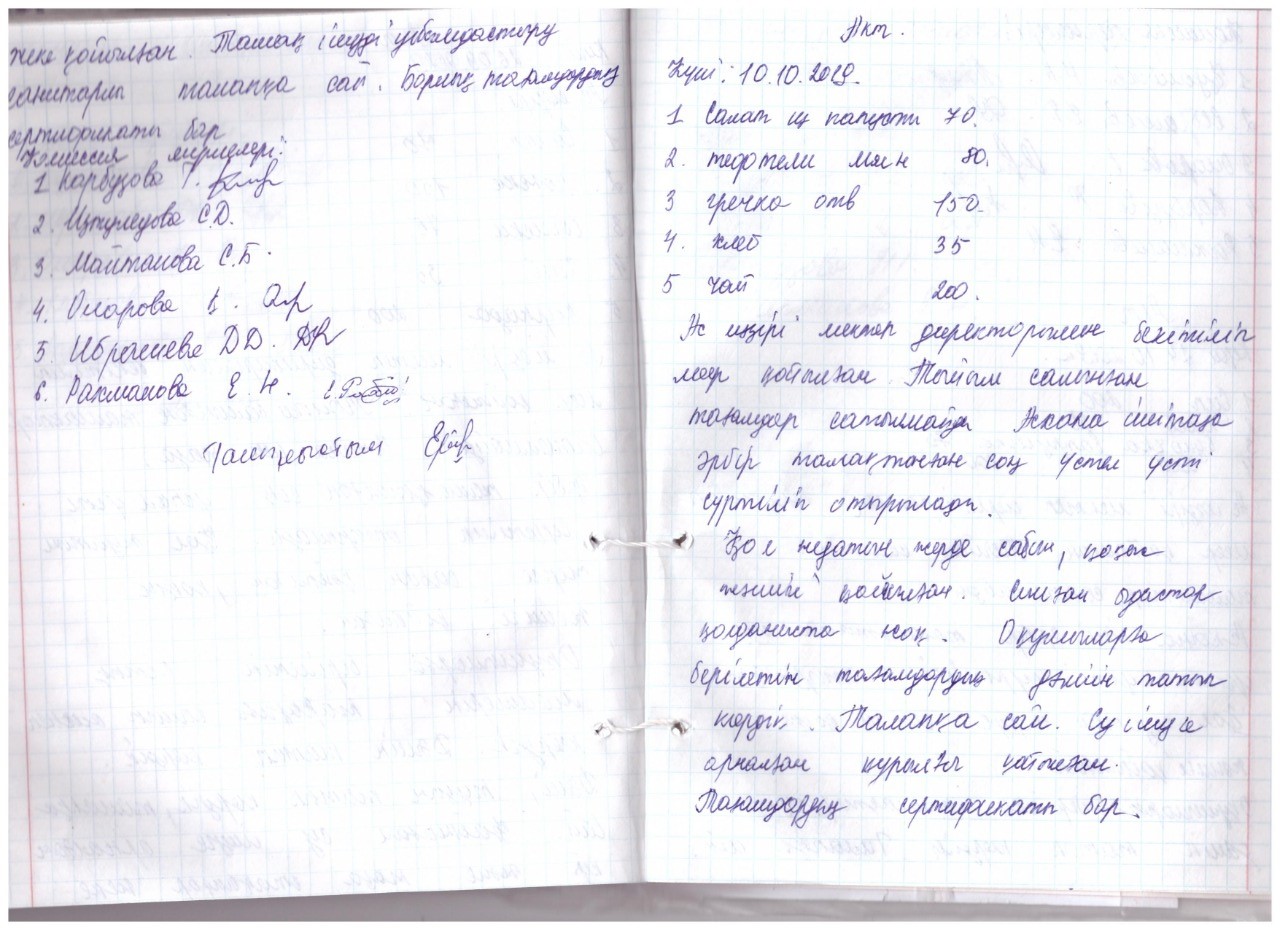 жеке қойылған. Тамақ ішуді ұйымдастыру
санитарлы талапқа сай. Барлық тағамдардың
сертификаты бар
Комиссия мүшелері:
1 Карбузова Г.
2. Изкулецова С.Д.
3. Майтанова С.Б.
4. Омарова
5. Ибрашева Д.Д.
6. Рахманова Е Н.
Акт.
Күні: 10.10.2019.
1 Салат из капусты 70.
2. тефтели мясн 80.
3 гречка отв 150.
4. хлеб 35
5 чай 200.
Ас мәзірі мектеп директорымен бекітіліп
мөр қойылған. Тыйым салынған
тағамдар сатылмайды. Асхана іші таза
әрбір тамақтанған соң үстел үсті
сүртіліп отырылады.
Қол жуатын жерде сабын, қағаз
қойылған. Сынған ыдыстар
қолданыста жоқ. Оқушыларға
берілетін тағамдардың дәмін татып
көрдік. Талапқа сай. Су ішуге
арналған құрылғы қойылған.
Тағамдардың сертификаты бар.